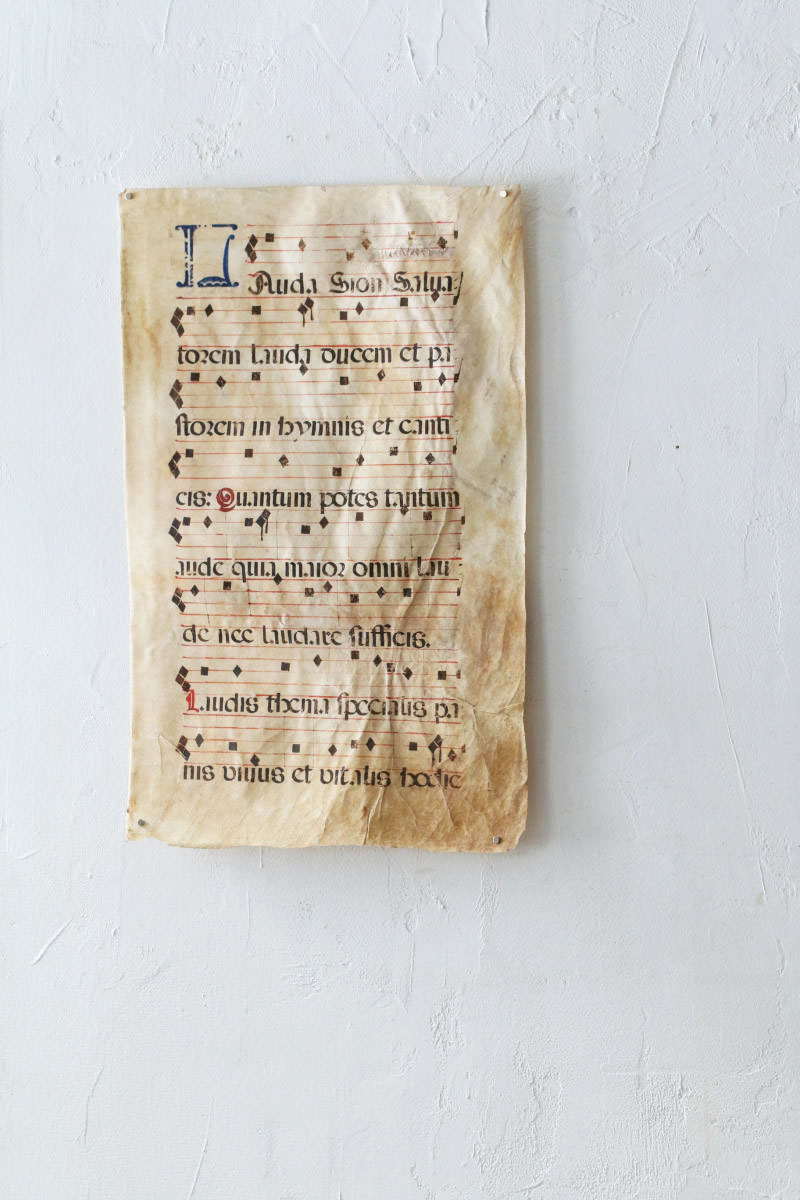 LAuda Sion Salua
torem lauda ducem et pa
storem in hymnis et canti
cis: Quantum potes tantum
aude quia maior omni lau
de nec laudare sufficis.
Laudis thema specialis pa
nis viuus et vitalis hodie